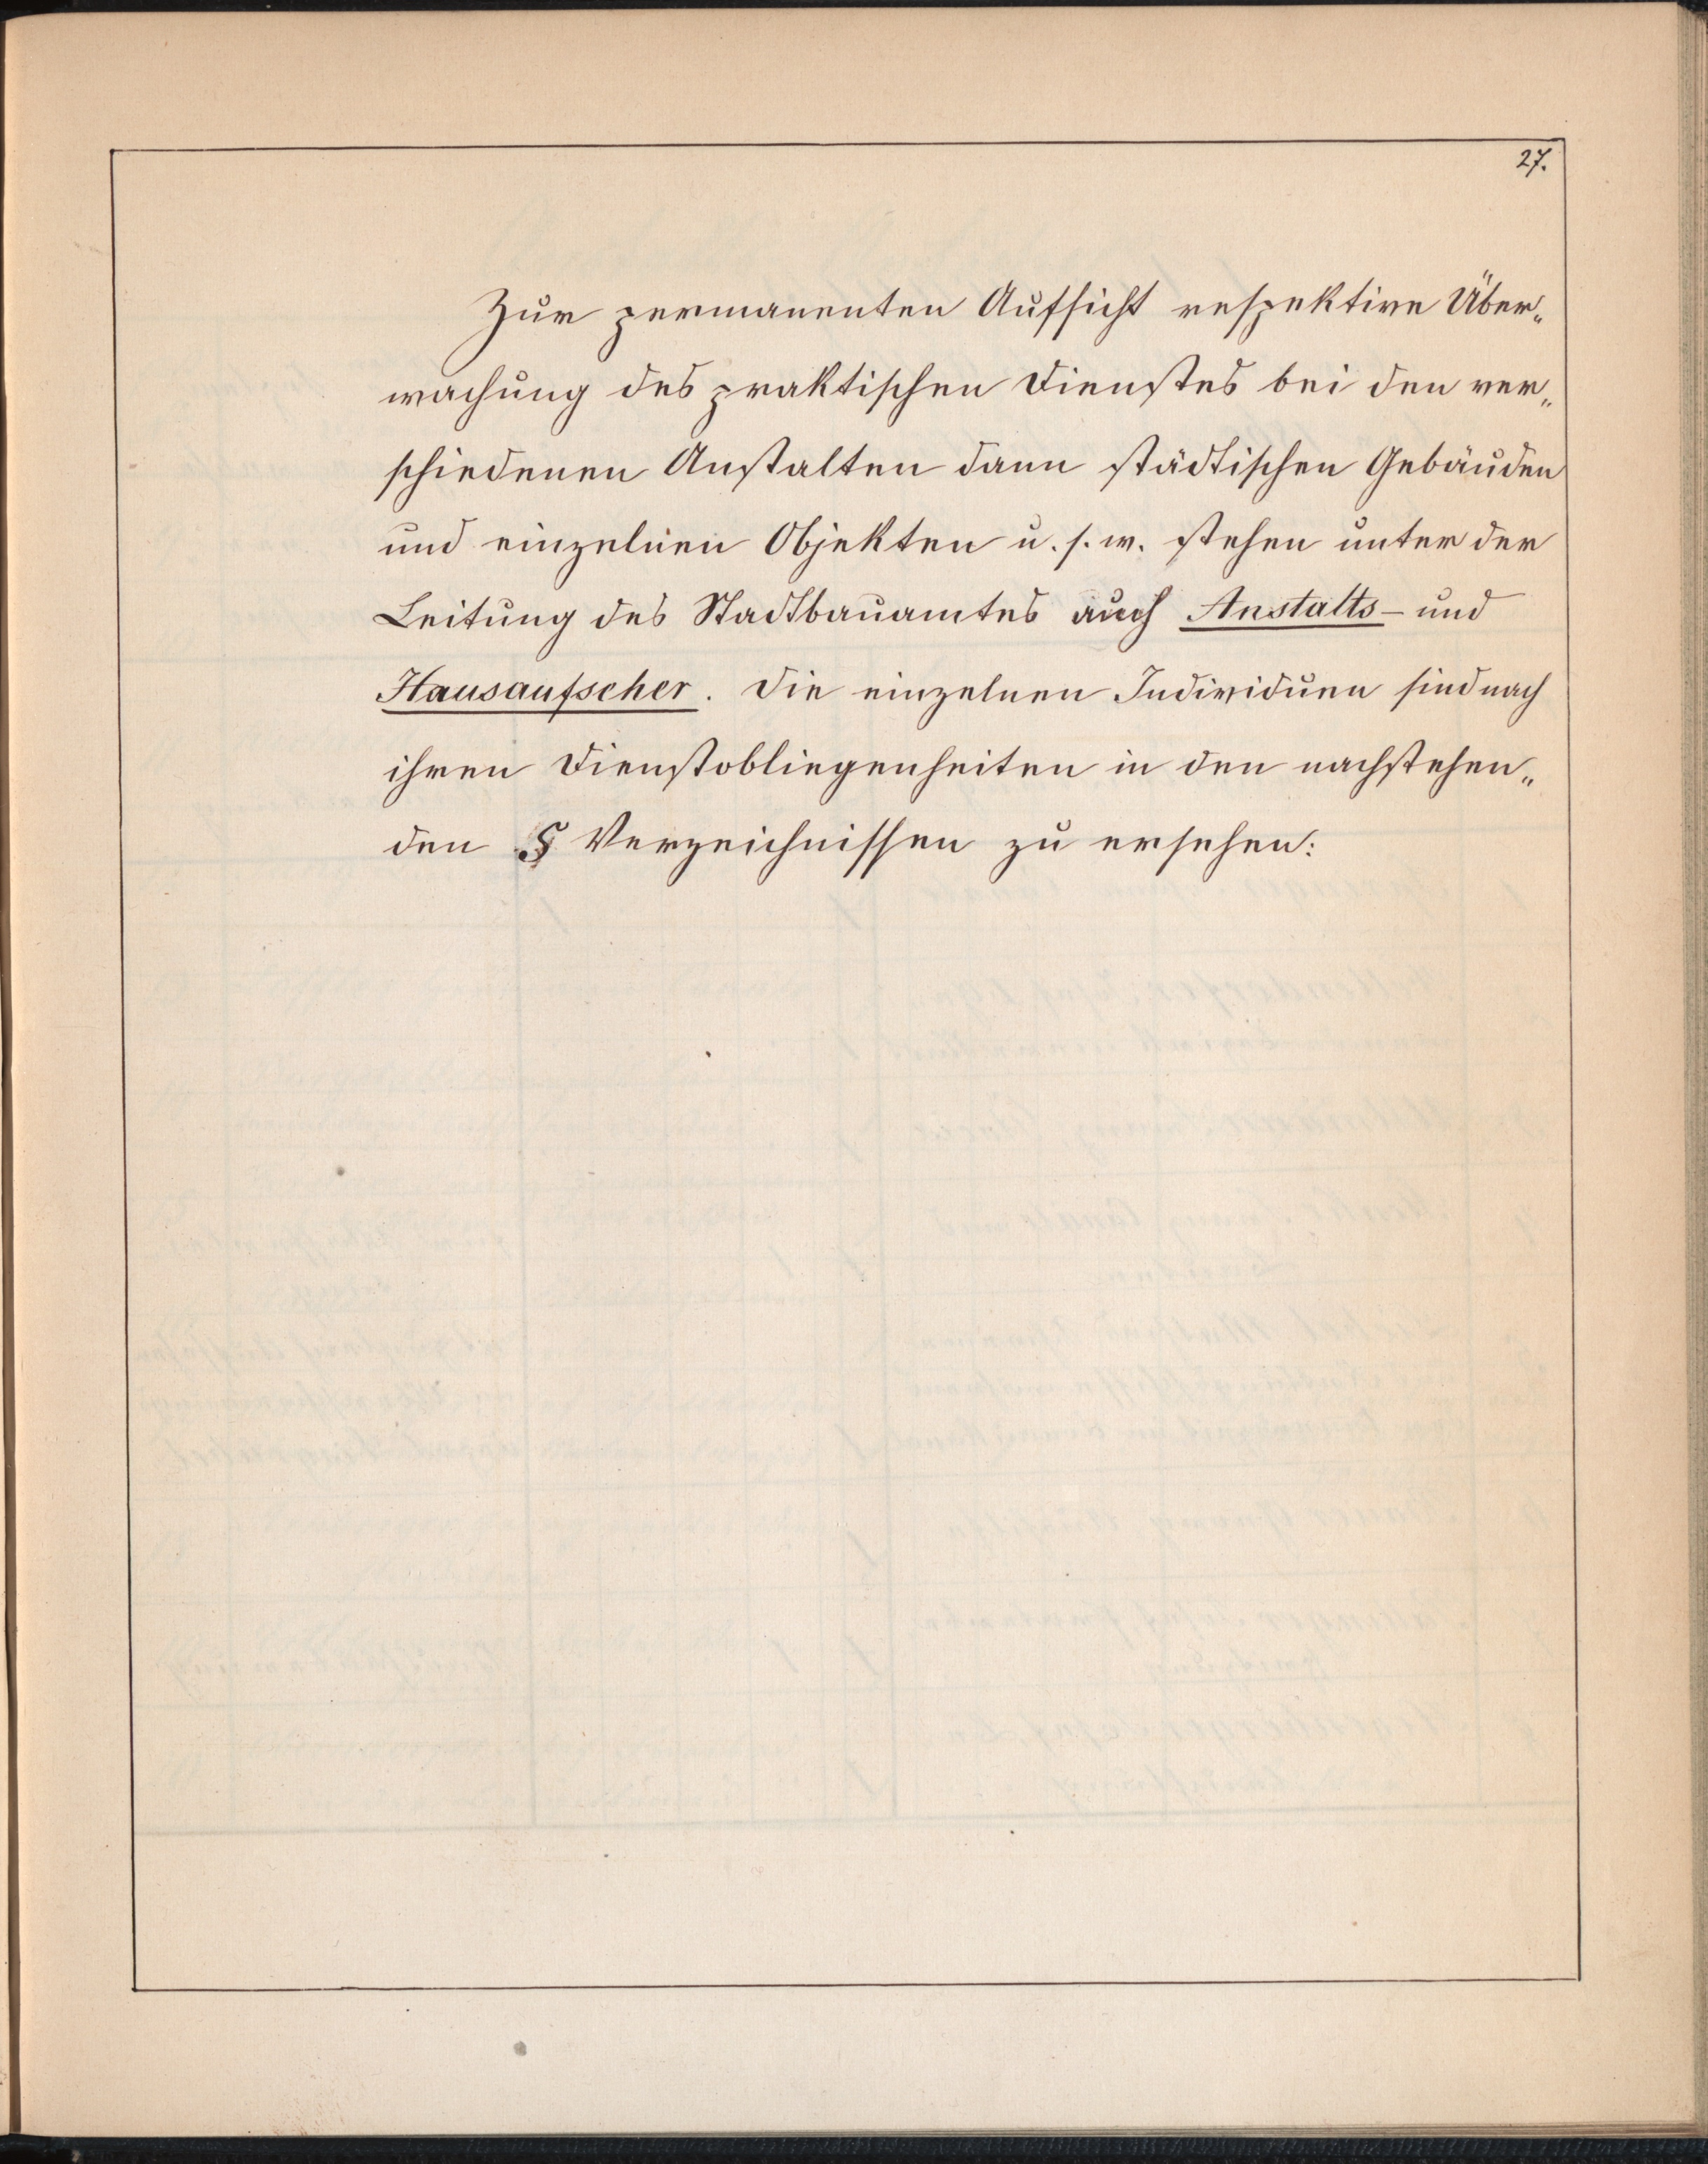 27.
Zur permanenten Aufsicht respektive Über„
wachung des praktischen Dienstes bei den ver„
schiedenen Anstalten dann städtischen Gebäuden
und einzelnen Objekten u. s. w. stehen unter der
Leitung des Stadtbauamtes auch Anstalts- und
Hausaufseher. Die einzelnen Individuen sind nach
ihren Dienstobliegenheiten in den nachstehen„
den § Verzeichnissen zu ersehen: